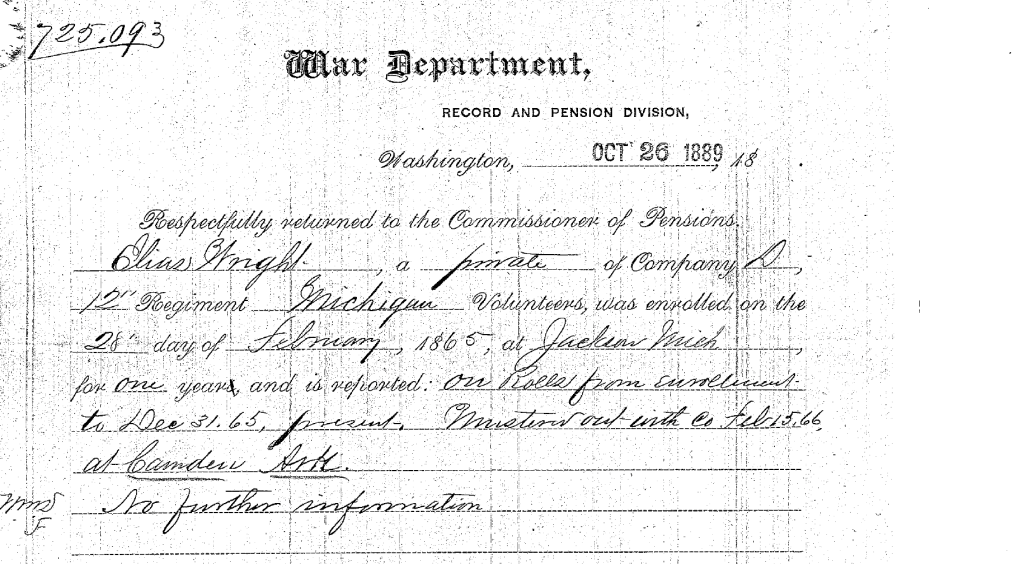 725.093
War Department,
RECORD AND PENSION DIVISION,
Washington, OCT 26 1889, 18 .
Respectfully returned to the Commissioner of Pensions.
Elias Wright, a private of Company D,
12" Regiment Michigan Volunteers, was enrolled on the
28" day of February, 1865, at Jackson Mich,
for one years, and is reported: On Rolls from enrollment
to Dec 31. 65, present. Mustered out with Co Feb 15. 66,
at Camden Ark.
No further information